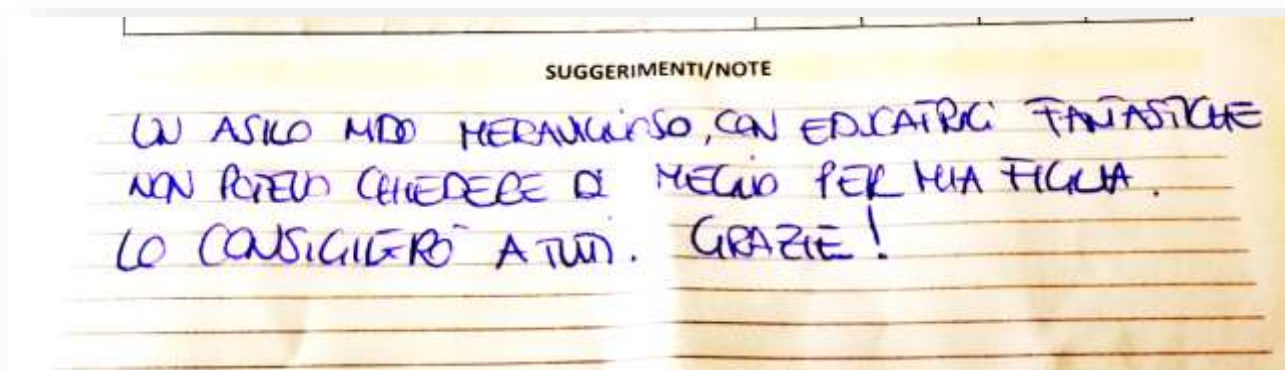 SUGGERIMENTI/NOTE
UN ASILO NIDO MERAVIGLIOSO, CON EDUCATRICI FANTASTICHE
NON POTEVO CHIEDERE DI MEGLIO PER MIA FIGLIA.
LO CONSIGLIERÒ A TUTTI. GRAZIE!